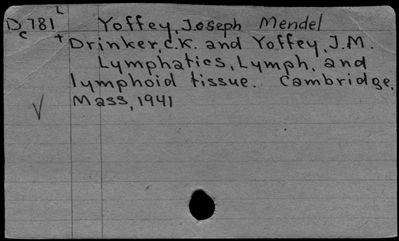 L
D781 Yoffey, Joseph Mendel
c + Drinker, C.K. and Yoffey, J.M.
Lymphatics, Lymph, and
lymphoid tissue. Cambridge,
✓ Mass, 1941